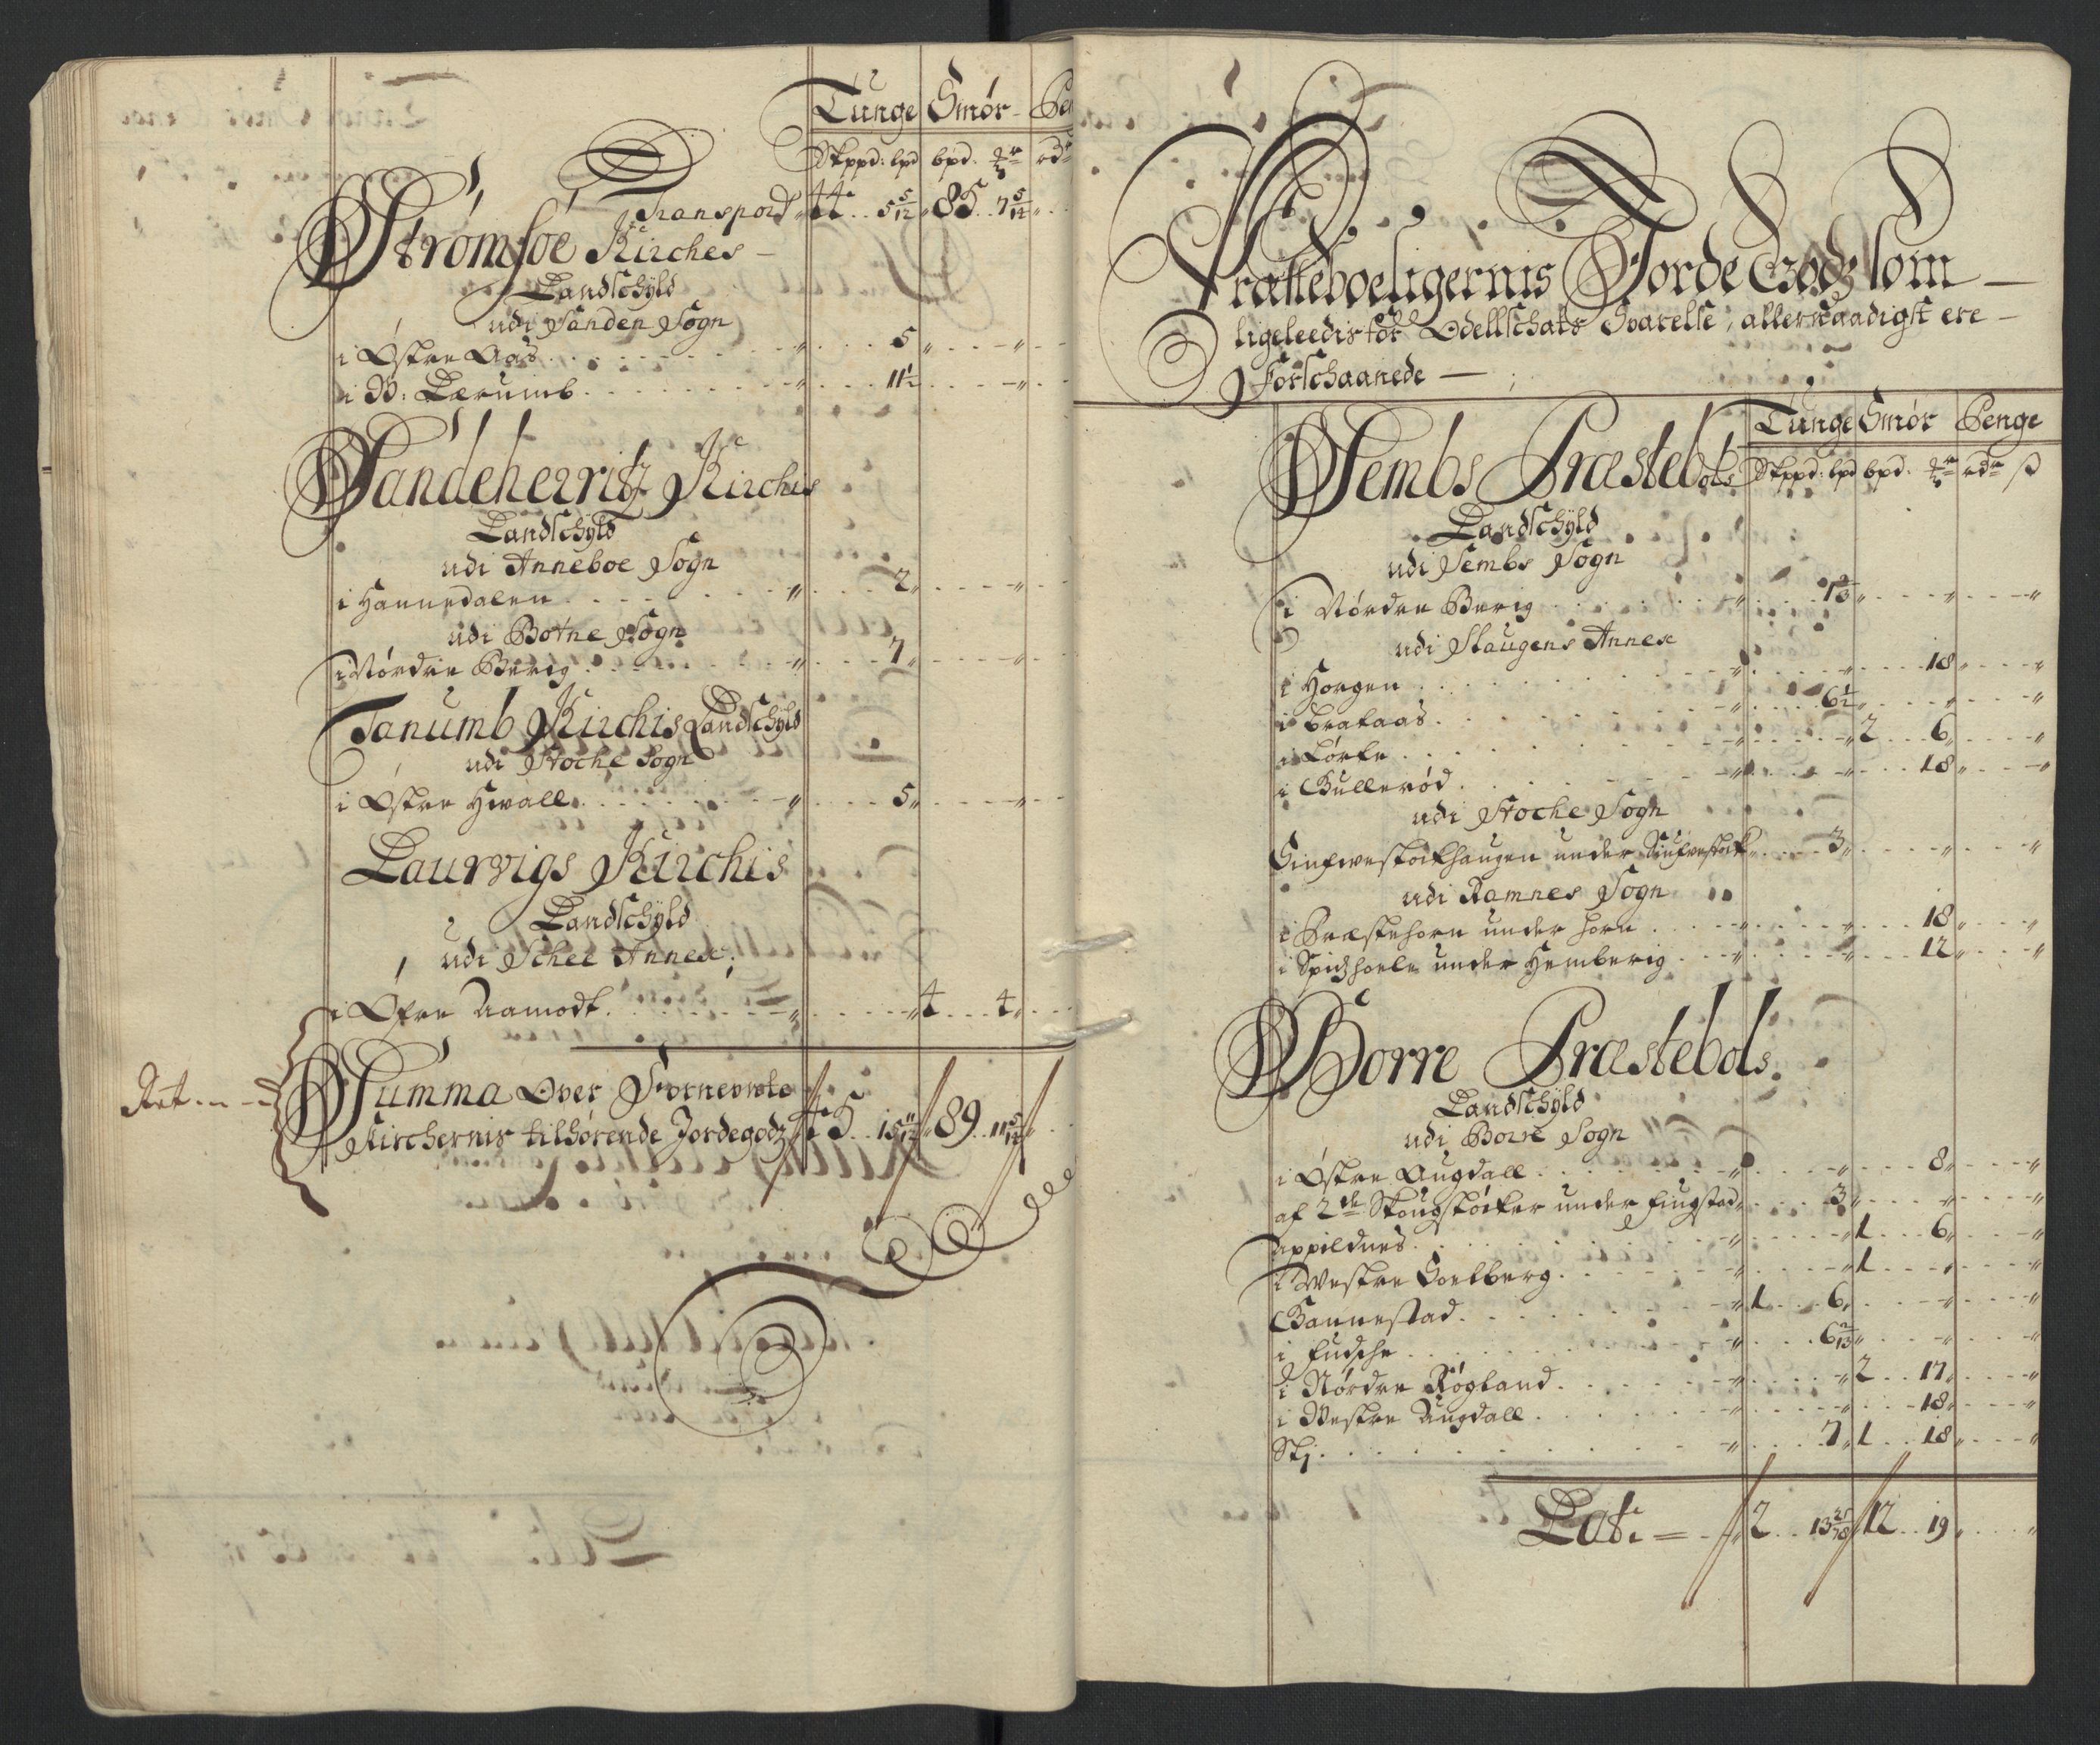 Tunge Smør Pen
Skppd: lpd bpd. rdr
Transport 44 .. 5 5/12 85 .. 7 5/12
Strømsøe Kirches
Landschÿld
udi Sanden Sogn
i Østre Aas 5
i W: Lærumb 11½
Sandeherritz Kirchis
Landschÿld
udi Anneboe Sogn
i Hannedalen 2
udi Botne Sogn
i Nørdre Berig 7
Tanumb Kirchis Landschÿld
udi Stoche Sogn
i Østre Hwall 5
Laurvigs Kirchis
Landschÿld
udi Schee Annex
i Øfre Aamodt 4 .. 4
Summa Over Forneonte
Kirchernis tilhørende Jordegodz 45 .. 15 11/12 89 .. 11 5/12
Ret
Præsteboeligernis Jorde Godz som
ligeleedis for Odellschats Svarelse, allernaadigst ere
Forschaanede
Tunge Smør Penge
Sembs Præstebols Skppd: lpd bpd. rdr ß
Landschÿld
udi Sembs Sogn
i Nørdre Berig 1 2/3
udi Slaugens Annex
i Horgen 18
i Brataas 6½
i Lørke 2 .. 6
i Gullerød 18
udi Stoche Sogn
Sinfwestochhaugen under Sinfwestoch 3
udi Ramnes Sogn
i Præstehorn under Horn 18
i Spidzhoele under Hemberig 12
Borre Præstebols
Landschÿld
udi Borre Sogn
i Østre Augdall 8
af 2de Skougstøcker under Fiugstad 3
Appildnes 1 .. 6
i Westre Soelberg 1
Gannestad 1 .. 6
i Fudsche 6 2/13
i Nørdre Røgland 2 .. 17
i Westre Augdall 18
Skj 7 1 .. 18
Lat: 2 .. 13 25/78 12 .. 19